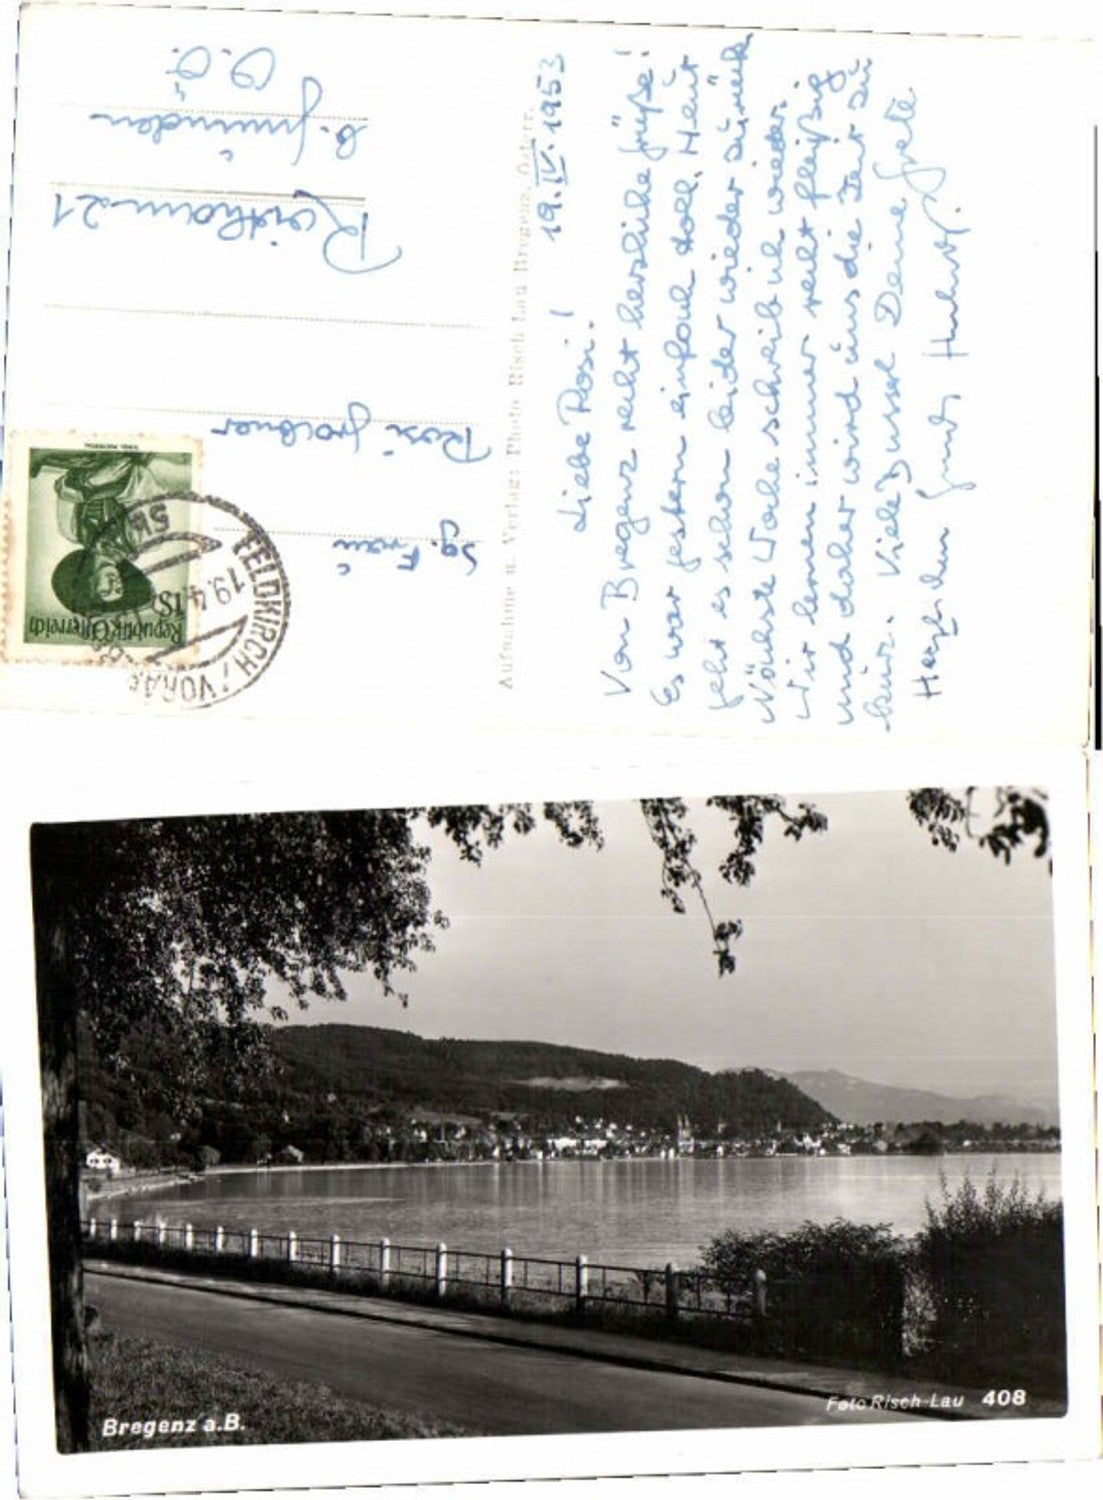 19. IV. 1953
Liebe Rosi!
Von Bregenz recht herzliche Grüße!
Es war gestern einfach toll. Heut
geht es schon leider wieder zurück.
Nächste Woche schreib ich wieder.
Wir lernen immer recht fleißig
und daher wird uns die Zeit zu
kurz. Viele Bussel Deine Grete
Herzlichen Gruß
Aufnahme u. Verlag: Photo Risch-Lau Bregenz, Österr.
Sg. Frau
Rosi
Reitham 21
b. Gmunden
O.Ö.
Republik Österreich
1S
FELDKIRCH / VORA
19.4.
5b
Bregenz a.B.
Foto Risch-Lau 408